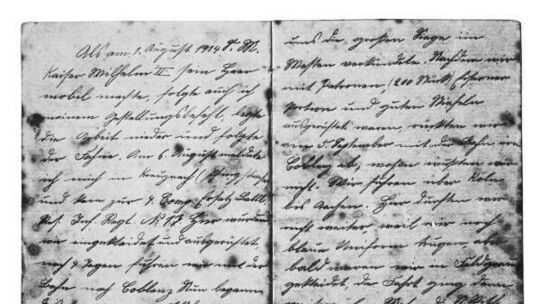 Als am 1. August 1914 S. M.
Kaiser Wilhelm II sein Heer
mobil machte, folgte auch ich
meinem Gestellungsbefehl, legte
die Arbeit nieder und folgte
der Fahne. Am 6. August meldete
ich mich in Kreuznach
und kam zur 4. Comp. Ersatz Batl.
Res. Inf. Regt. No 17. Hier wurden
wir eingekleidet und ausgerüstet
nach 4 Tagen fuhren wir mit der
Bahn nach Coblenz. Nun begann
uns die großen Siege im
Westen verkündete. Nachdem wir
mit Patronen (200 Stück) eiserner
Portion und guten Stiefeln
ausgerüstet waren, rückten wir
am 5. September mit der Bahn von
Coblenz ab, wohin wußten wir
nicht. Wir fuhren über Köln
bis Aachen. Hier durften wir
nicht weiter weil wir noch
blaue Uniform trugen, aber
bald waren wir in Feldgrau
gekleidet, die Fahrt ging dann